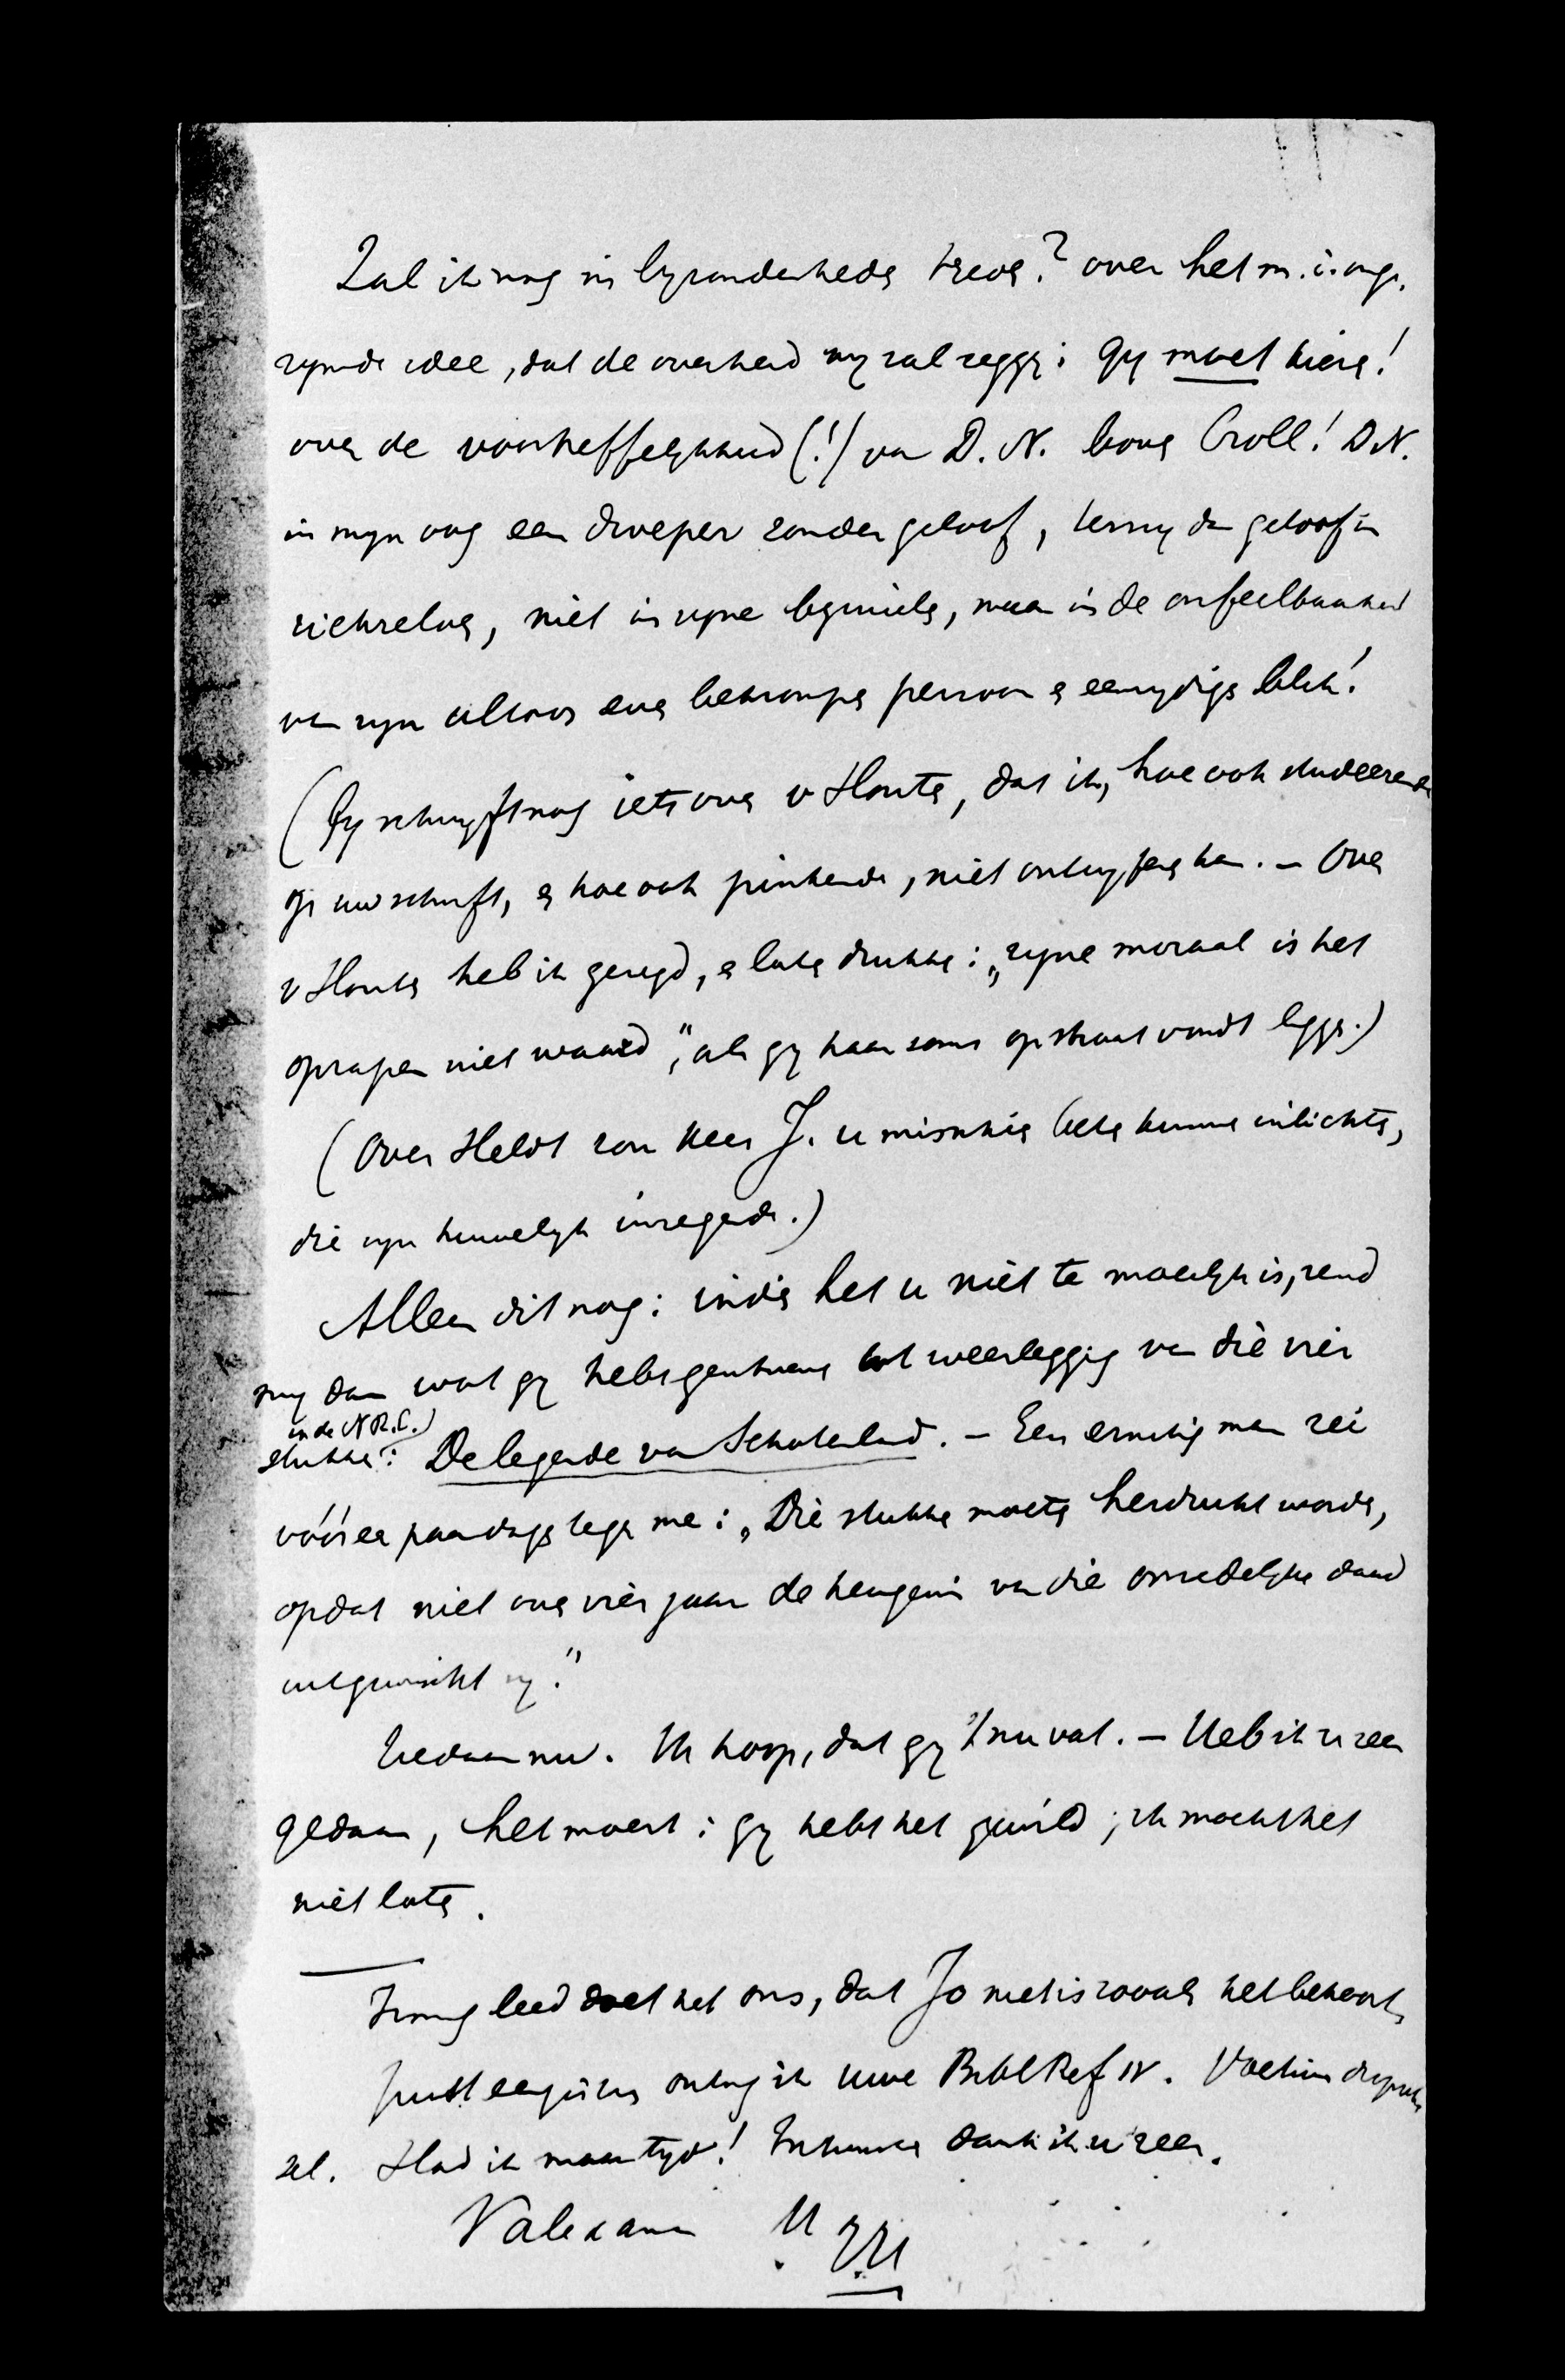 Zal ik nog in byzonderheden treden? over het m.i. onge-
rymde idee, dat de overheid my zal zeggen: Gy moet kiezen!
over de voortreffelykheid (!) van D. N. boven Croll! D.N.
in myn oog een dweper zonder geloof, tenzy dan geloof in
zichzelven, niet in zyne beginselen, maar in de onfeilbaarheid
van zyn altoos even bekrompen persoon en eenzydigen blik!
(Gy schryft nog iets over v Houten, dat ik, hoe ook studeerende
op uw schrift, en hoe ook pinkende, niet ontcyferen kan. – Over
v Houten heb ik gezegd, en laten drukken: „zyne moraal is het
oprapen niet waard", als gy haar soms op straat vondt liggen.)
(Over Heldt zou Heer J. u misschien beter kunnen inlichten,
die zyn huwelyk inzegende.)
Alleen dit nog: indien het u niet te moeilyk is, zend
my dan wat gy hebt geschreven tot weerlegging van die vier
in de N.R.C.)
stukken: De legende van Schoterland. – Een ernstig man zei
vóór een paar dagen tegen me: „Die stukken moeten herdrukt worden,
opdat niet over vier jaar de heugenis van die onzedelyke daad
uitgewischt zy."
Gedaan nu. Ik hoop, dat gy 't nu vat. – Heb ik u zeer
gedaan, het moest: gy hebt het gewild; ik mocht het
niet laten.
Innig leed doet het ons, dat Jo niet is zooals het behoort.
Juist eergister ontving ik uwe Bibl Ref IV. Voetius disput.
sel. Had ik maar tyd! Intusschen dank ik u zeer.
Vale